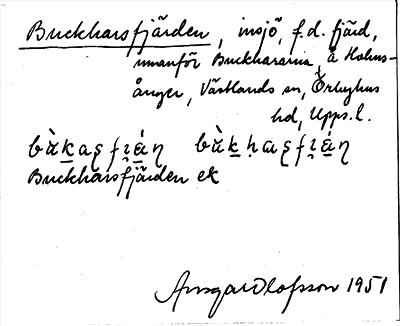 Buckharsfjärden, insjö, f.d. fjärd,
innanför Buckhararna, å Holms-
ånger, Västlands sn, Örbyhus
hd, Upps.l.
bὰk̠aʂfi̯á̠ɳ bὰk̠ḥaʂfi̯á̠ɳ
Buckharsfjärden ek
Ansgar Olofsson 1951